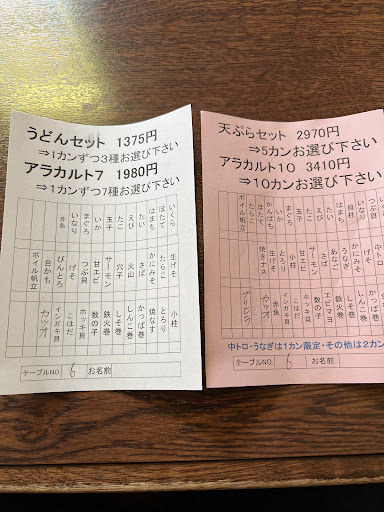 うどんセット 1375円
⇒1カンずつ3種お選び下さい
アラカルト7 1980円
⇒1カンずつ7種お選び下さい
いくら
ほたて
はまち
たい
えび
たこ
いか
玉子
まぐろ
いなり
赤魚
生げそ
たらこ
かにみそ
さば
火山
穴子
サーモン
甘エビ
つぶ貝
げそ
びんとろ
合かも
ボイル帆立
小柱
とろり
焼なす
かっぱ巻
しんこ巻
しそ巻
鉄火巻
数の子
ホッキ貝
こはだ
イシガキ貝
カツオ
テーブルNO. 6 お名前
天ぷらセット 2970円
⇒5カンお選び下さい
アラカルト10 3410円
⇒10カンお選び下さい
はまち
えび
たこ
いか
玉子
まぐろ
かんぱち
ほたて
たい
かにみそ
うなぎ
あなご
さば
サーモン
甘エビ
小柱
とろり
生げそ
焼きナス
ボイル帆立
かっぱ巻
しんこ巻
鉄火巻
エビマヨ
数の子
ホッキ貝
こはだ
イシガキ貝
赤魚
カツオ
中トロ・うなぎは1カン限定・その他は2カン
テーブルNO. 6 お名前